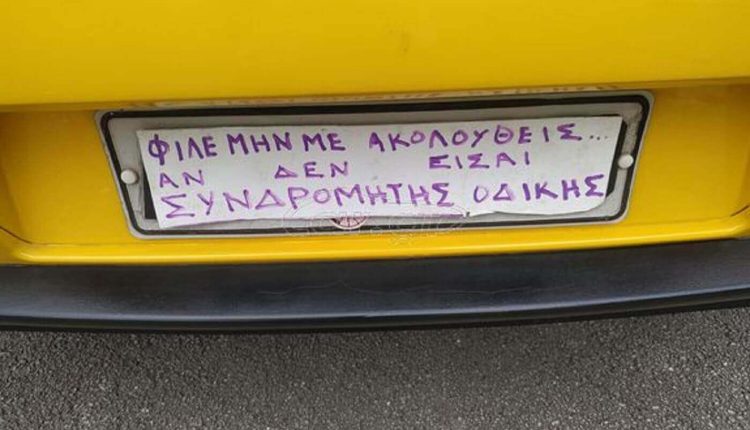 ΦΙΛΕ ΜΗΝ ΜΕ ΑΚΟΛΟΥΘΕΙΣ...
ΑΝ ΔΕΝ ΕΙΣΑΙ
ΣΥΝΔΡΟΜΗΤΗΣ ΟΔΙΚΗΣ